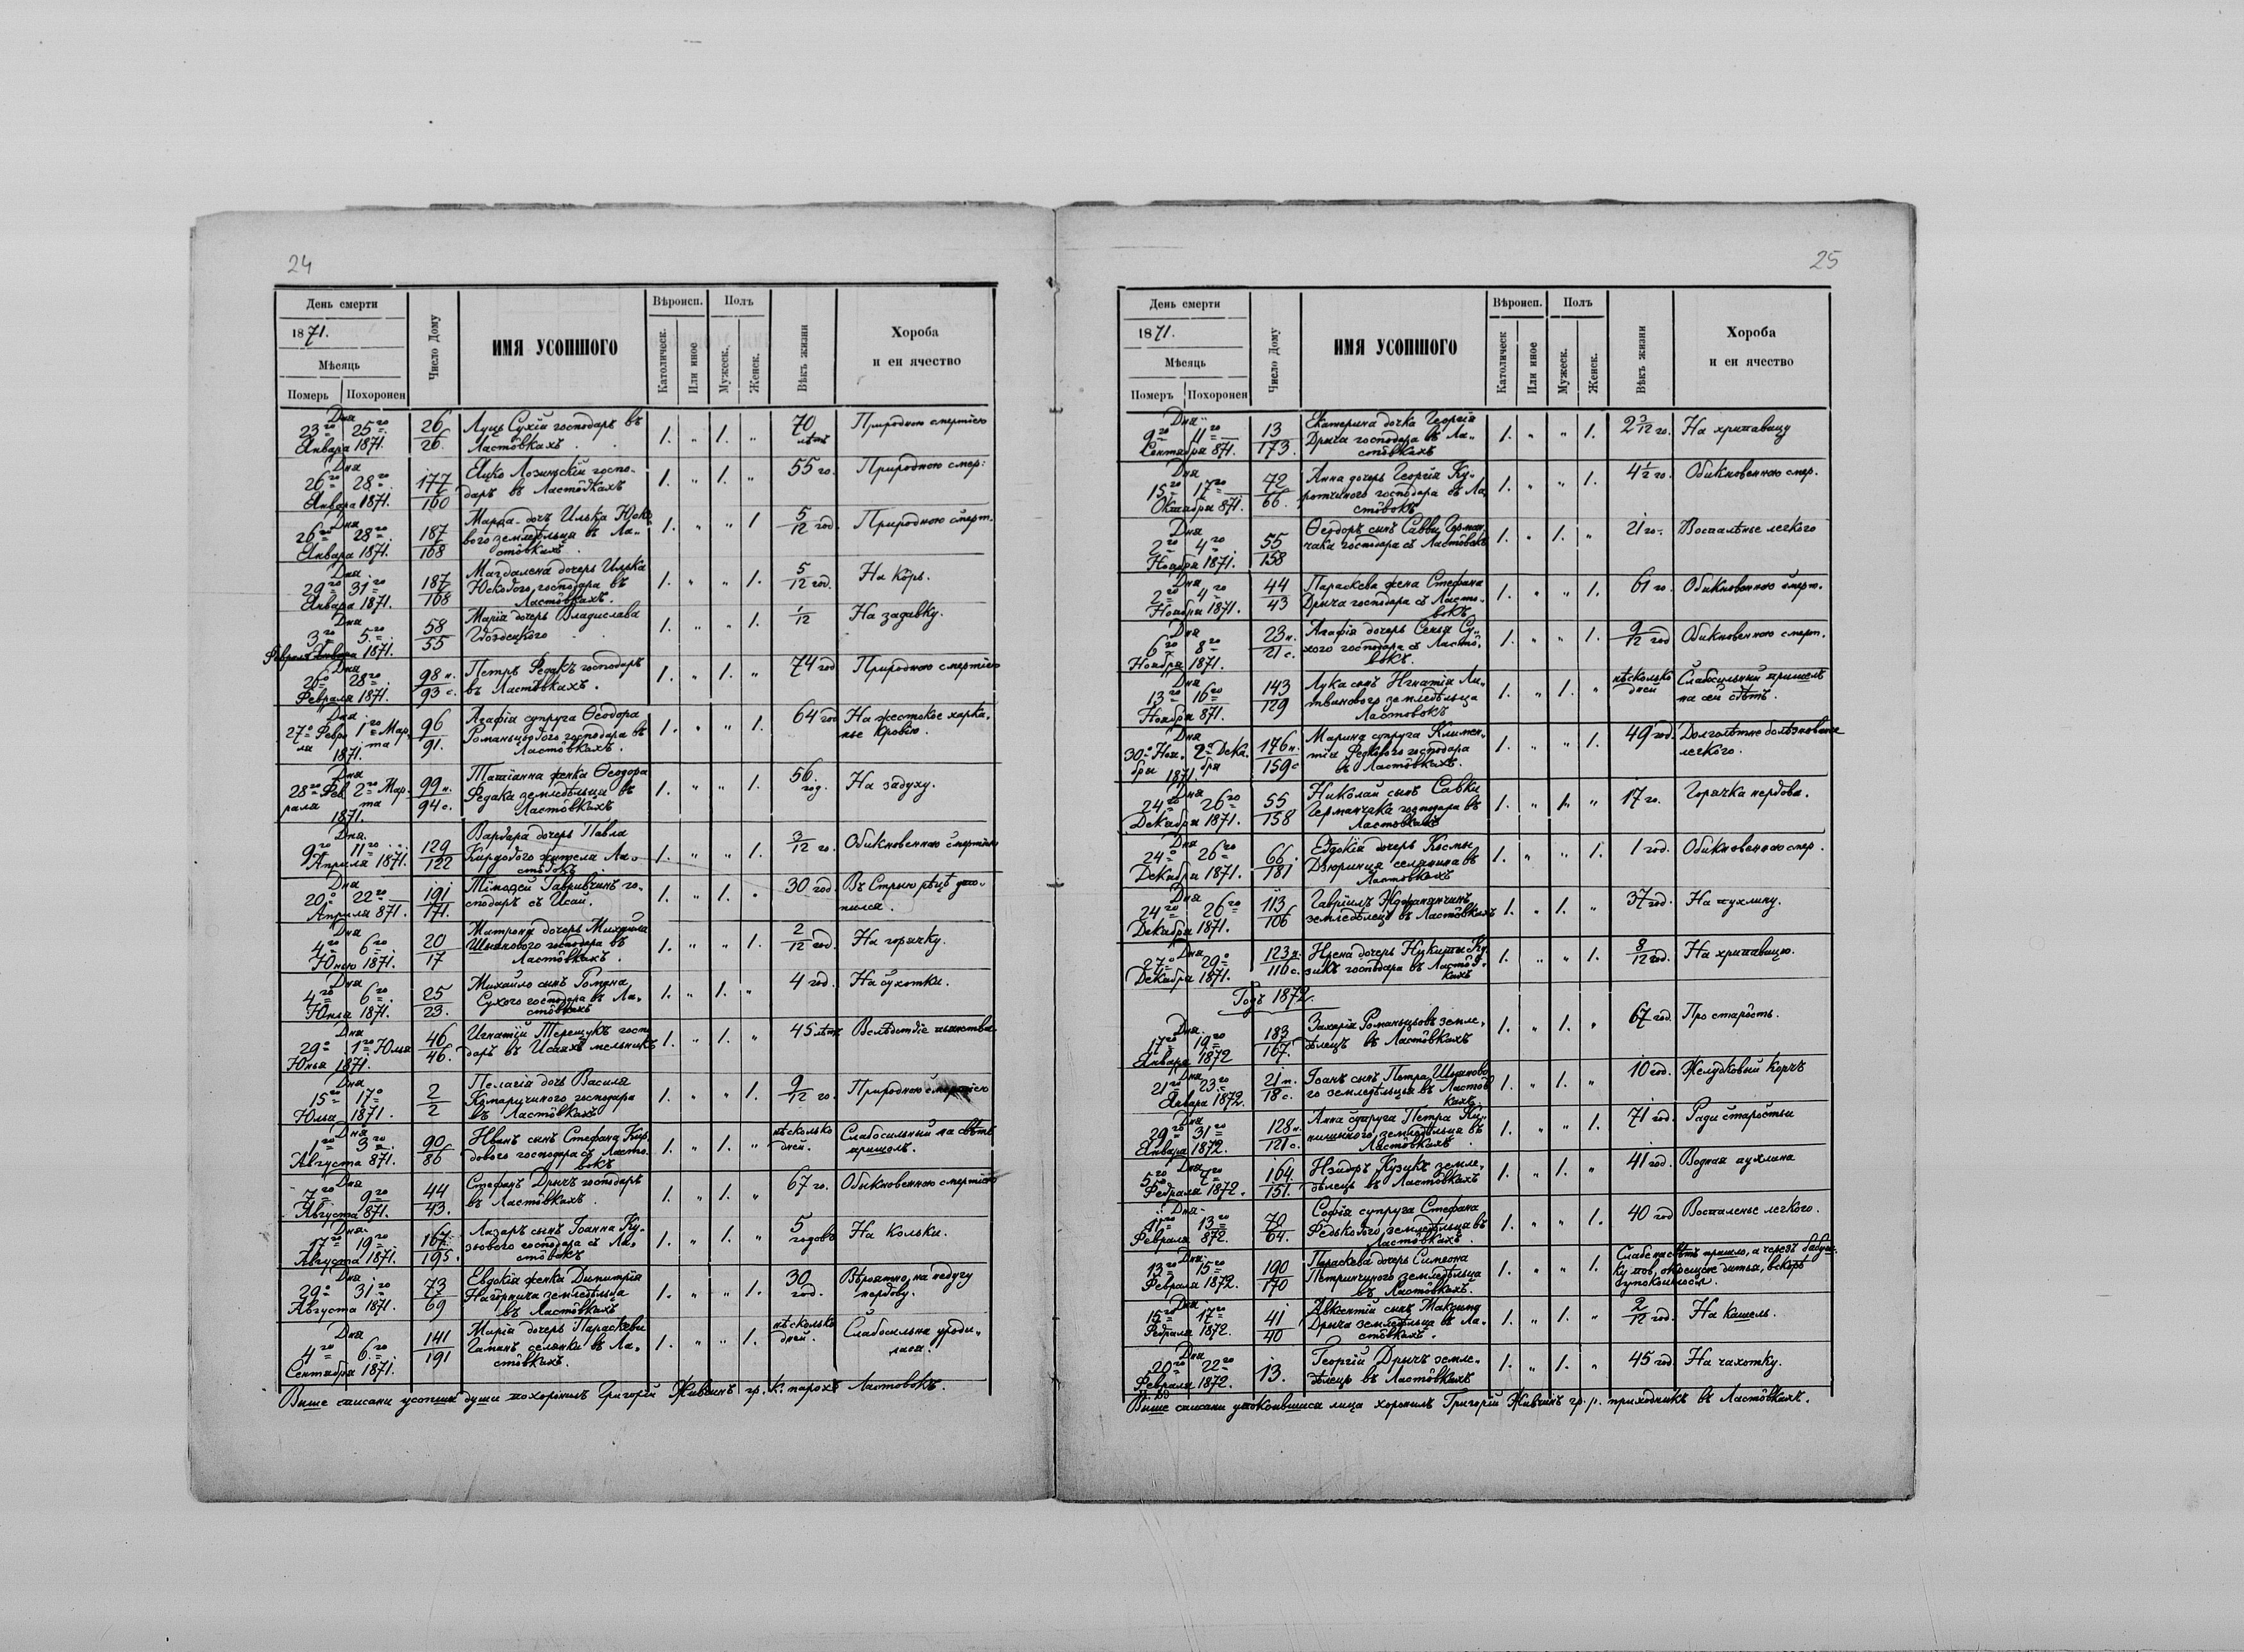 24
День смерти
1871.
Мѣсяць
Померъ Похоронен
Число Дому
ИМЯ УСОПШОГО
Вѣроисп.
Католическ.
Или иное
Полъ
Мужеск.
Женск.
Вѣкъ жизни
Хороба
и еи ячество
Дня
23го 25го
Января 1871.
26/26.
Луць Сухій господарь въ
Ластôвкахъ.
1. " 1. "
70
лѣтъ
Природною смертію
Дня
26го 28го
Января 1871.
177/160
Лозинскій госпо-
дарь въ Ластôвкахъ
1. " 1. "
55 го.
Природною смер:
Дня
26го 28го
Января 1871.
187/168
дочь Илька Юско
вого земледѣльца въ Ла-
стôвкахъ.
1. " " 1
5/12 год.
Природною смерт.
Дня
29го 31го
Января 1871.
187/168
Магдалена дочерь Илька
Юскового, господаря въ
Ластôвкахъ.
1. " " 1.
5/12 год.
На кôрь.
Дня
3го 5го.
Февраля 1871.
58/55
Марія дочерь Владислава
Гвоздецкого
1. " " 1.
1/12
На задавку.
Дня
26го 28го.
Февраля 1871.
98 н./93 с.
Петръ Федакъ господарь
въ Ластôвкахъ.
1. " 1. "
74 год
Природною смертію
Дня
27го Февра 1го Мар
ля та
1871.
96/91.
Агафія супруга Ѳеодора
Романцьового господаря въ
Ластôвкахъ.
1. " " 1.
64 год
На жестокое харка-
нье кровію.
Дня
28го Фев 2го Мар-
раля та
1871.
99 н./94 с.
Татіанна женка Ѳеодора
Федака земледѣльца въ
Ластôвкахъ
1. " " 1.
56.
год.
На задуху.
Дня
9го 11го
Априля 1871.
129/122
Варвара дочерь Павла
Кирдового жителя Ла-
стôвокъ
1. " " 1.
3/12 го.
Обикновенною смертію
Дня
20го 22го
Априля 871.
191/171.
Тімоѳей Гавривчинъ го-
сподарь съ Исай.
1. " 1. "
30 год.
Въ Стрыю рѣцѣ уто-
пился.
Дня
4го 6го
Юнею 1871.
20/17
Матрона дочерь Михаила
господаря въ
Ластôвкахъ.
1. " " 1.
2/12 год.
На горячку.
Дня
4го 6го.
Юнья 1871.
25/23.
Михайло сынъ Романа
Сухого господаря въ Ла-
стôвкахъ
1. " 1. "
4 год.
На сухотки.
Дня
29го 1го Юлья
Юнья 1871.
46/46.
Игнатій Терещукъ госпо
дарь въ Исаяхъ мельникъ
1. " 1. "
45 лѣтъ
Вслѣдствіе пьянства
Дня
15го 17го
Юлья 1871.
2/2
Пелагія дочь Василя
господаря
въ Ластôвкахъ
1. " " 1.
9/12 го.
Природною смертію
Дня
1го 3го
Августа 871.
90/86
Иванъ сынъ Стефана Кир
дового господаря съ Ласто
вокъ
1. " 1. "
нѣсколько
дней.
Слабосильный на свѣтъ
пришолъ.
Дня
7го 9го
Августа 871.
44/43.
Стефанъ Дрычъ господарь
въ Ластôвкахъ.
1. " 1. "
67 го.
Обыкновенною смертію
Дня
17го 19го
Августа 1871.
167./195.
Лазаръ сынъ Іоанна Ку-
зьового господаря съ Ла-
стôвокъ
1. " 1. "
5
годовъ
На кольки.
Дня
29го 31го
Августа 1871.
73/69
Евдокія женка Димитрія
Нагôрнича земледѣльца
въ Ластôвкахъ
1. " " 1.
30
год.
Вѣроятно, на недугу
нервову.
Дня
4го 6го.
Сентября 1871.
141/191
Марія дочерь Параскевы
селянки въ Ла-
стôвкахъ.
1. " " 1.
нѣсколько
дней.
Слабосильна уроди-
лася.
Више списани усопши души похоронилъ Григорій Живчинъ гр. к. парохъ Ластовокъ.
25
День смерти
1871.
Мѣсяць
Померъ Похоронен
Число Дому
ИМЯ УСОПШОГО
Вѣроисп.
Католическ
Или иное
Полъ
Мужеск.
Женск.
Вѣкъ жизни
Хороба
и еи ячество
Дня
9го 11го
Сентября 871.
13/173.
Екатерина дочка Георгія
Дрыча господаря въ Ла-
стôвкахъ
1. " " 1.
2 3/12 го.
На хрипавицу
Дня
15го 17го
Октября 871.
72/66.
Анна дочерь Георгія Ку-
господаря въ Ла
стôвокъ
1. " " 1.
4 1/2 го.
Обикновенною смер.
Дня
2го 4го
Ноября 1871.
55/158
Ѳеодоръ сынъ Саввы Герман
чака господаря съ Ластôвокъ
1. " 1. "
21 го.
Воспалѣнье легкого
Дня
2го 4го
Ноября 1871.
44/43
Параскева жена Стефана
Дрыча господаря съ Ласто-
вокъ
1. " " 1.
61 го.
Обикновенною смерт.
Дня
6го 8го
Ноября 1871.
23 н./21 с.
Агафія дочерь Сенья Су-
хого господаря съ Ласто-
вокъ.
1. " " 1.
9/12 год
Обикновенною смерт.
Дня
13го 16го
Ноября 871.
143/129
Лука сынъ Игнатія Ли-
твинового земледѣльца
Ластовокъ
1. " 1. "
нѣсколько
дней
Слабосильный пришелъ
на сей свѣтъ.
Дня
30го Ноя- 2го Дека-
бря бря
1871.
176 н./159 с
Марина супруга Климен-
тія Федкового господаря
въ Ластôвкахъ.
1. " " 1.
49 год.
Долголѣтне болѣзнованье
легкого.
Дня
24го 26го
Декабря 1871.
55/158
Николай сынъ Савки
Германчака господаря въ
Ластовкахъ
1. " 1. "
17 го.
Горячка нервова.
Дня
24го 26го
Декабря 1871.
66./181
Евдокія дочерь Космы
Дзюринця селянина въ
Ластовкахъ
1. " " 1.
1 год.
Обикновенною смер.
Дня
24го 26го
Декабря 1871.
113/106
Гавріилъ
земледѣлецъ въ Ластôвкахъ
1. " 1. "
37 год.
На пухлину.
Дня
27го 29го
Декабря 1871.
123 н./116 с.
Ирена дочерь Никиты Ку
зикъ господаря въ Ластôв-
кахъ
1. " " 1.
8/12 год.
На хрипавицю.
Годъ 1872.
Дня
17го 19го
Января 1872
183/167.
Захарія Романьцьовъ земле-
дѣлецъ въ Ластôвкахъ
1. " 1. "
67 год.
Про старôсть.
Дня
21го 23го
Января 1872.
21 н./18 с.
Іоанъ сынъ Петра
го земледѣльця въ Ластôв
кахъ
1. " 1. "
10 год.
Желудковый корчъ
Дня
29го 31го
Января 1872.
128 н./121 с.
Анна супруга Петра
земледѣльца въ
Ластôвкахъ
1. " " 1.
71 год.
Ради старостьи
Дня
5го 7го
Февраля 1872.
164./151.
Изидоръ Кузикъ земле-
дѣлецъ въ Ластôвкахъ
1. " 1. "
41 год.
Водная пухлина
Дня
11го 13го
Февраля 872.
70/64.
Софія супруга Стефана
Федькового земледѣльца въ
Ластôвкахъ.
1. " " 1.
40 год
Воспаленье легкого.
Дня
13го 15го
Февраля 1872.
190/170
Параскева дочерь Симеона
земледѣльца
въ Ластôвкахъ.
1. " " 1.
Слабе на свѣтъ пришло, а черезъ бабу
дитья, вскорѣ
супокоилося.
Дня
15го 17го
Февраля 1872.
41/40
Авксентій сынъ Максима
Дрыча земледѣльца въ Ла-
стôвкахъ.
1. " 1. "
2/12 год.
На кашель.
Дня
20го 22го
Февраля 1872.
13.
Георгій Дрычъ земле-
дѣлецъ въ Ластôвкахъ
1. " 1. "
45 год
На чахотку.
Више списани упокоившися лица хоронилъ Григорій Живчинъ гр. р. приходникъ въ Ластôвкахъ.